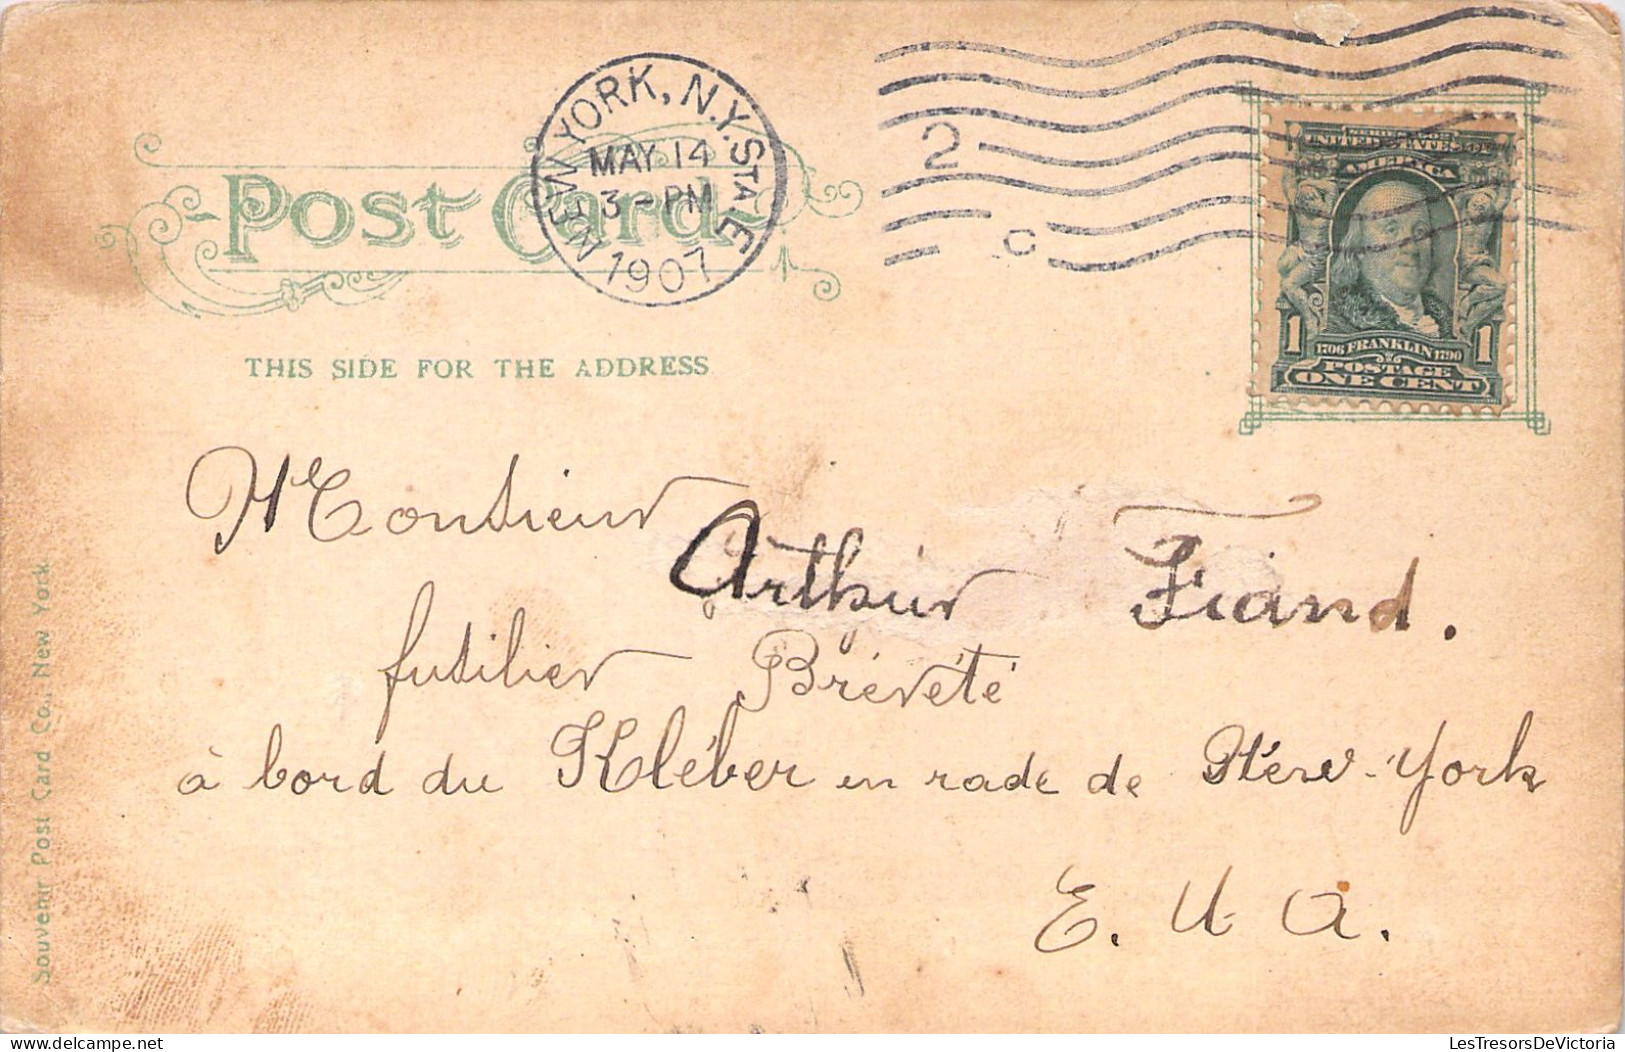 NEW YORK, N.Y. STATE
MAY 14
3-PM
1907
2
C
Post Card
THIS SIDE FOR THE ADDRESS
UNITED STATES OF
AMERICA
1 1
1706 FRANKLIN 1790
POSTAGE
ONE CENT
Monsieur Arthur Fiand.
fusilier Brévété
à bord du Kléber en rade de New-York
E. U. A.
Souvenir Post Card Co., New York.
LesTresorsDeVictoria
LesTresorsDeVictoria.com